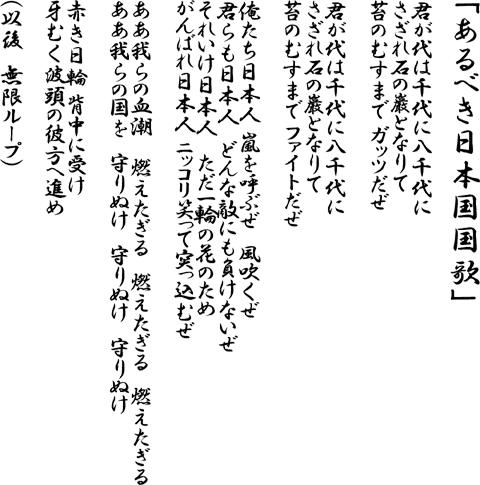 「あるべき日本国国歌」
君が代は千代に八千代に
さざれ石の巌となりて
苔のむすまで ガッツだぜ
君が代は千代に八千代に
さざれ石の巌となりて
苔のむすまで ファイトだぜ
俺たち日本人 嵐を呼ぶぜ 風吹くぜ
君らも日本人 どんな敵にも負けないぜ
それいけ日本人 ただ一輪の花のため
がんばれ日本人 ニッコリ笑って突っ込むぜ
ああ我らの血潮 燃えたぎる 燃えたぎる 燃えたぎる
ああ我らの国を 守りぬけ 守りぬけ 守りぬけ
赤き日輪 背中に受け
牙むく波頭の彼方へ進め
(以後 無限ループ)